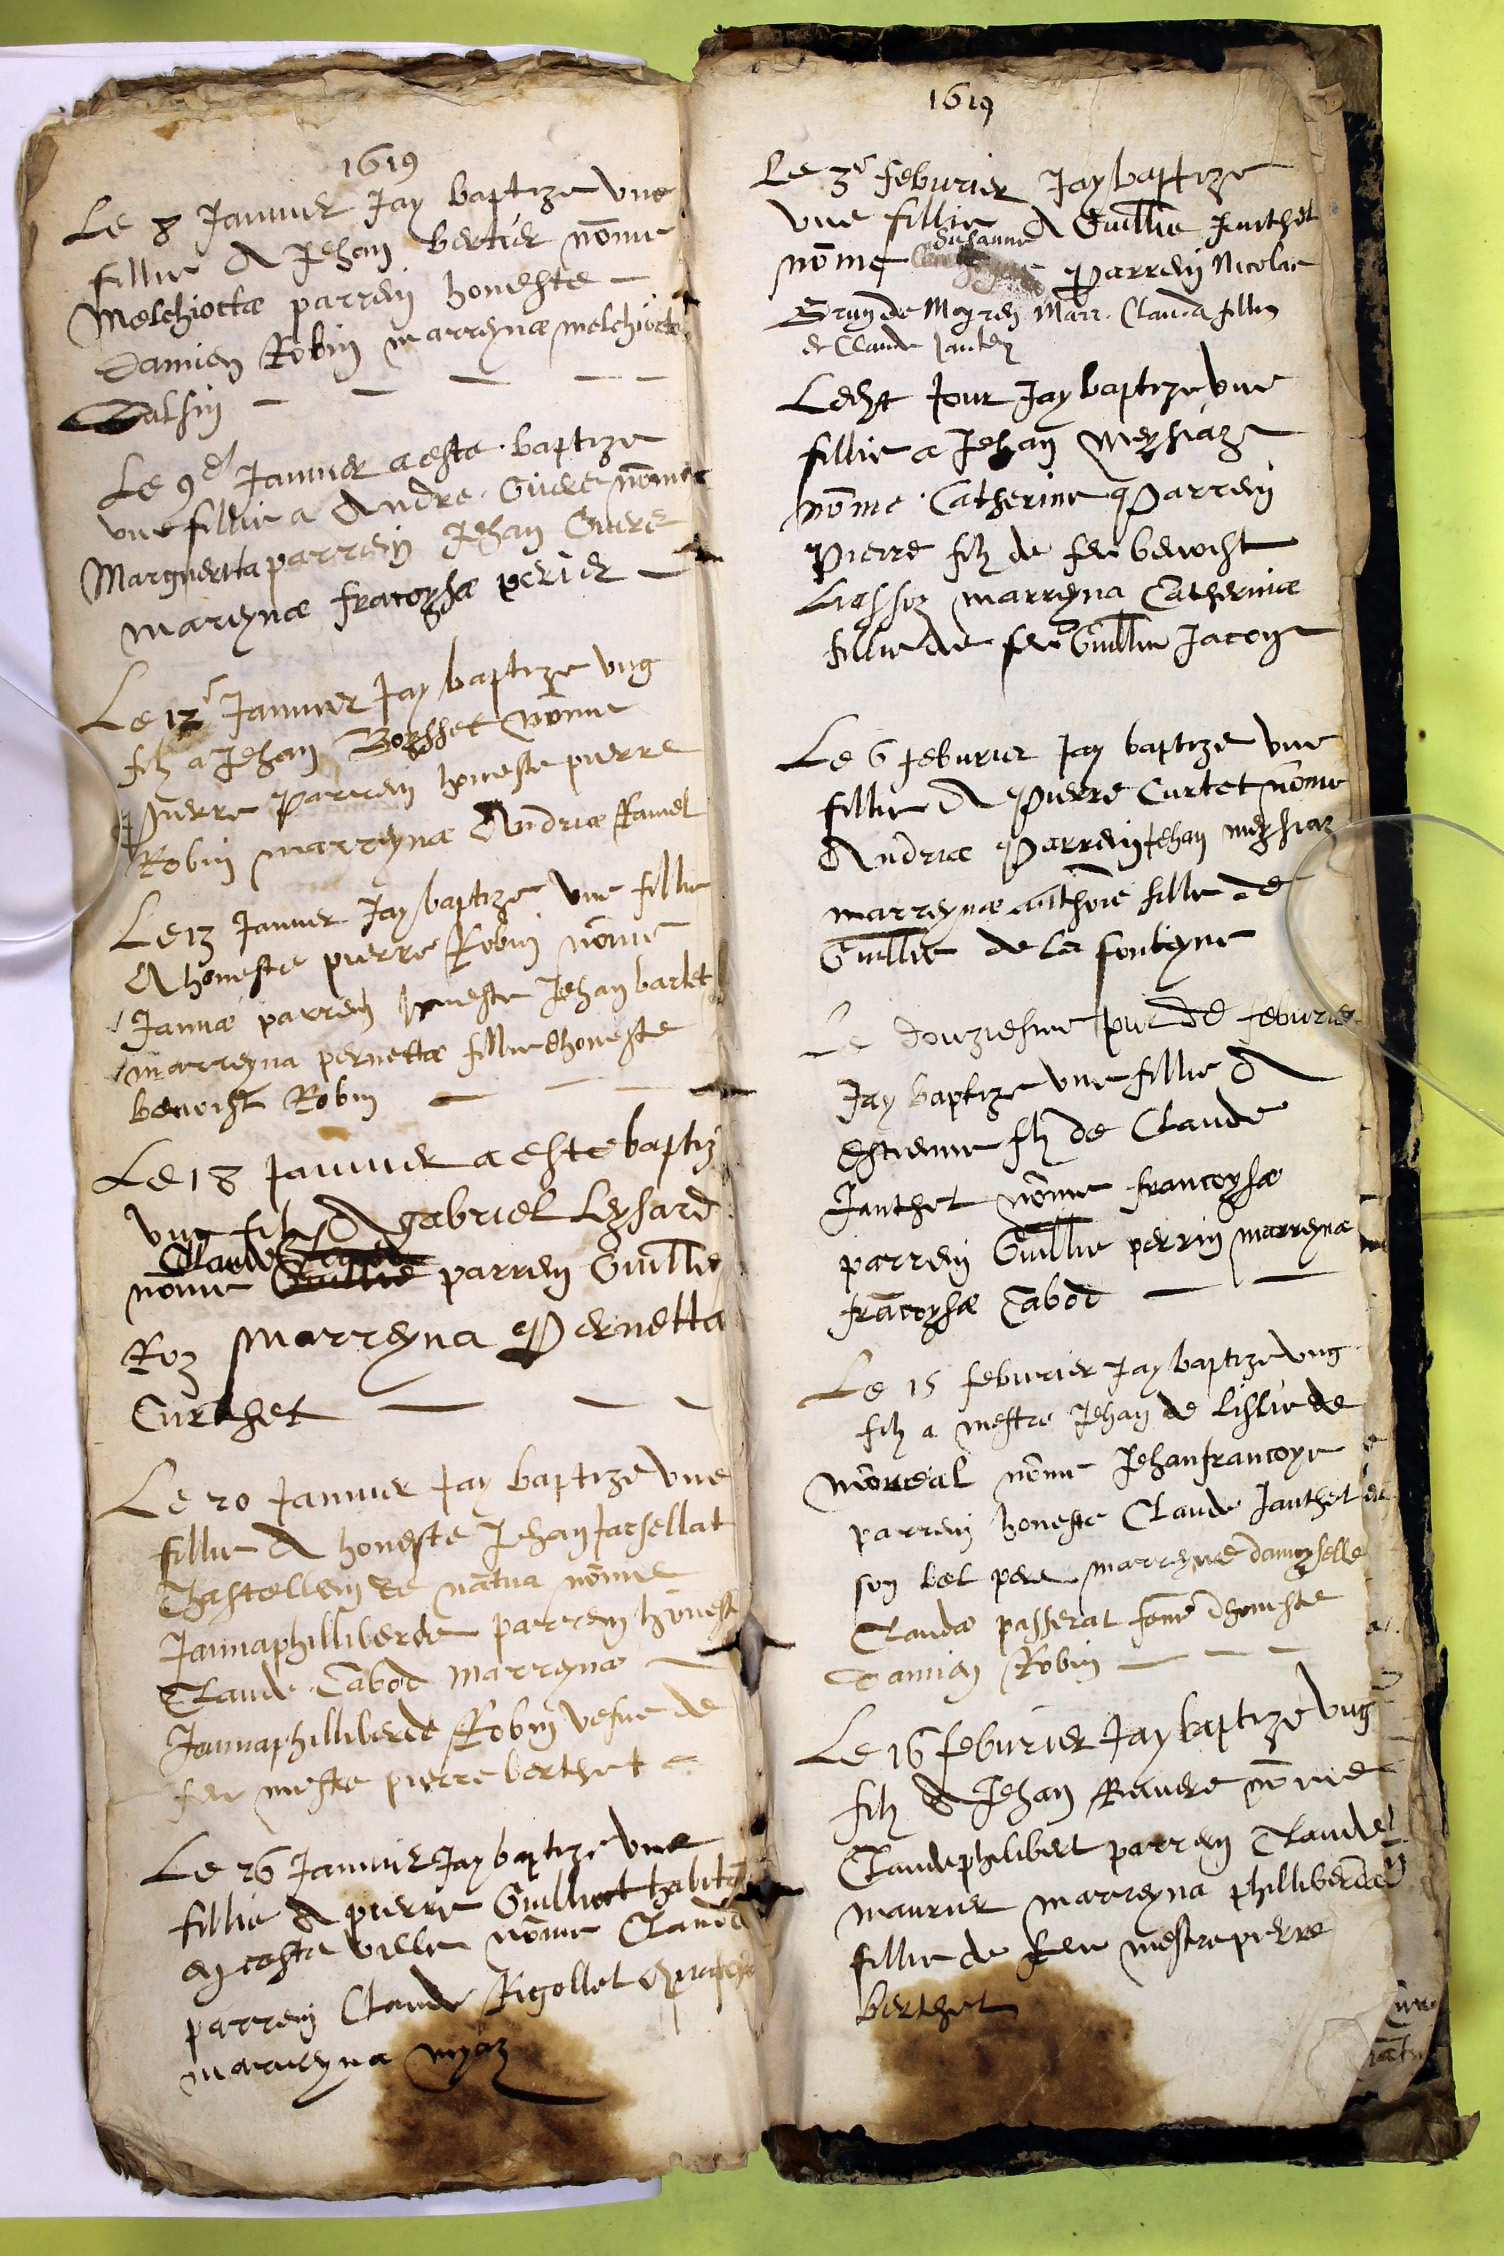 1619
Le 8 Januier Jay baptize vne
fillie A Jehan bertier nōme
Melchiottæ parrein honeste
Damien Robin marreynæ melchiotte
Le 9e Januier a este baptize
vne fillie a Andre Guere nōmee
Margueritta parrein Jehan Guere
mareynæ fracoysæ perier
Le 12e Januier Jay baptize vng
filz a Jehan Boysset nōme
Pierre Parrein honeste pierre
Robin marreynæ Andriæ Ramel
Le 13 Januier Jay baptize vne fillie
A honeste pierre Robin nōme
Jannæ parrein honeste Jehan barlet
marreyna pernettæ fillie dhoneste
benoist Robin
Le 18 Januier a este baptiz
vng filz A gabriel Leysard
Claude
nōme Guillie parrein Guillie
Roz marreyna Pernetta
Curthet
Le 20 Januier Jay baptize vne
fillie A honeste Jehan Jarsellat
Chastellein de nātua nōme
Jannaphilliberde parrein honest
Claude Cabod marreynæ
Jannaphilliberde Robin vefue de
feu mestre pierre berthet
Le 26 Januier Jay baptize vne
fillie A pierre Guilliot habitāt
en ceste ville nōme Clauda
parrein Claude Rigollet
marreyna myaz
1619
Le 3e feburier Jay baptize
vne fillie A Guillie Janthet
susanne
nōme Parrein Nicolas
de Moyren Marr. Clauda fillie
de Claude Jantet
Ledit Jour Jay baptize vne
fillie a Jehan Meysiaze
nōme Catherine Parrein
Pierre filz de feu benoist
marreyna Catherinæ
fillie de feu Guillie Jacoye
Le 6 feburier Jay baptize vne
fillie A Pierre Curtet nōme
Andriæ Parrein Jehan meysiaz
marreynæ anthōie fille de
Guillie de la fonteyne
Le douziesme Jour de feburier
Jay baptize vne fillie A
Estienne filz de Claude
Janthet nōme francoysæ
parrein Guillie perrin marreyna
frācoysæ Cabod
Le 15 feburier Jay baptize vng
filz a mestre Jehan de lislie de
mōreal nōme Jehanfrancoye
parrein honeste Claude Janthet
son bel pere marreyne damoyselle
Claudæ passerat feme dhoneste
Damien Robin
Le 16 feburier Jay baptize vng
filz A Jehan Reuere nōme
Claudephilibert parrein Claude
maurier marreyna philliberde
fillie de feu mestre pierre
berthet